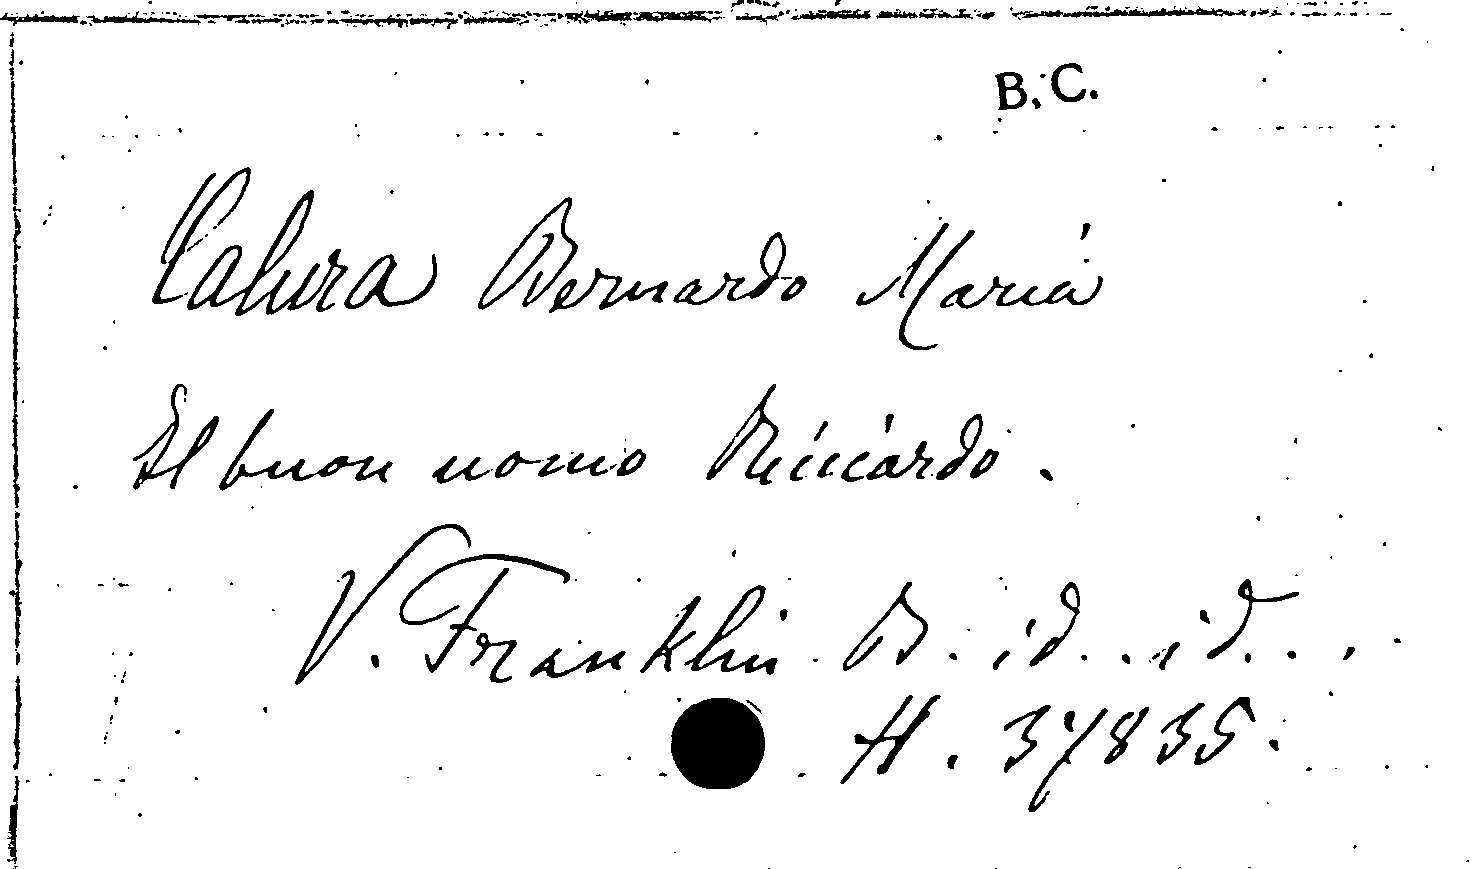 B. C.
Calura Bernardo Maria
Il buon uomo Riccardo.
V. Franklin B. id.. id...
H. 37835.